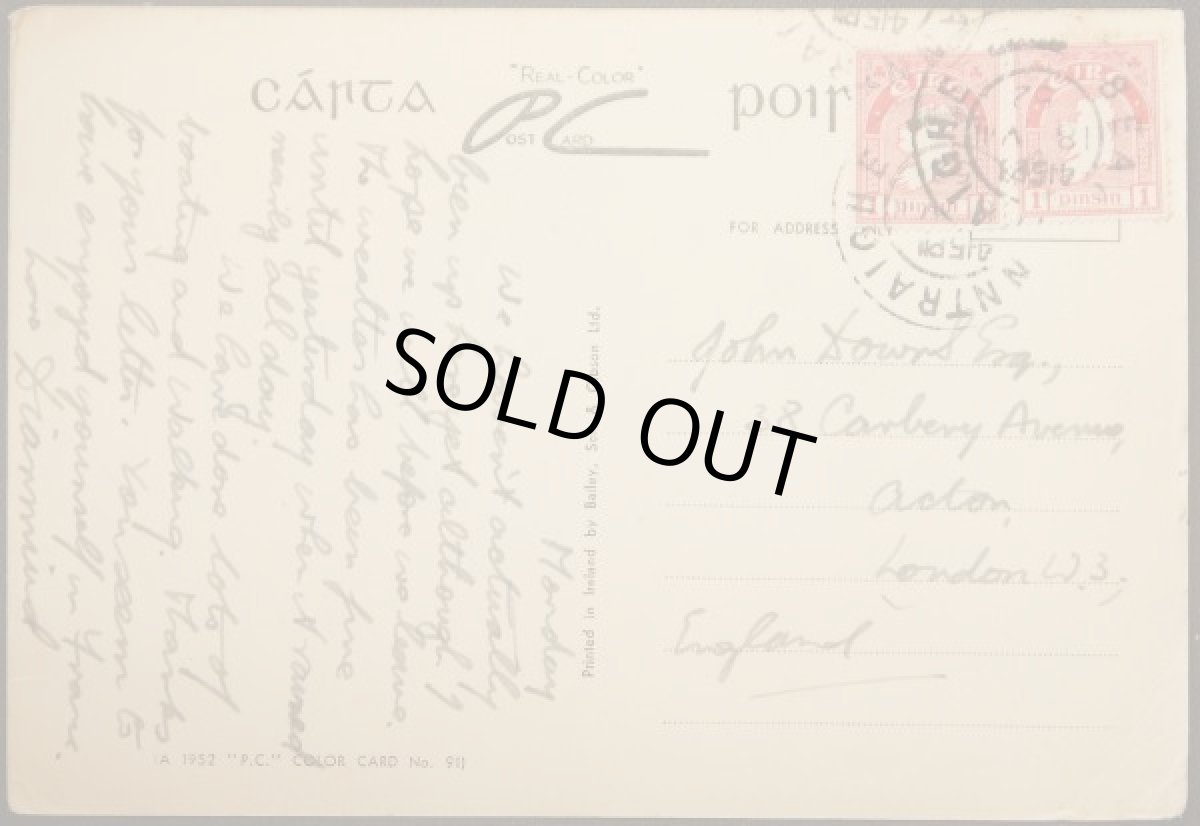 CÁRTA
"REAL-COLOR"
PC
POST CARD
POIS
FOR ADDRESS ONLY
ÉIRE
ÉIRE
1 PINGIN
1 PINGIN 1
415PM
415PM
415PM
SOLD OUT
Monday
We haven't actually
been up to
hope we will before we leave.
The weather has been fine
until yesterday when it rained
nearly all day.
We have done lots of
boating and walking. Thanks
for your letter. You seem to
have enjoyed yourself in France.
Love Diarmuid
Printed in Ireland by Bailey, Son & Gibson Ltd.
John Downs Esq.,
28 Carbery Avenue,
Acton,
London W.3.,
England
(A 1952 "P.C." COLOR CARD No. 91)